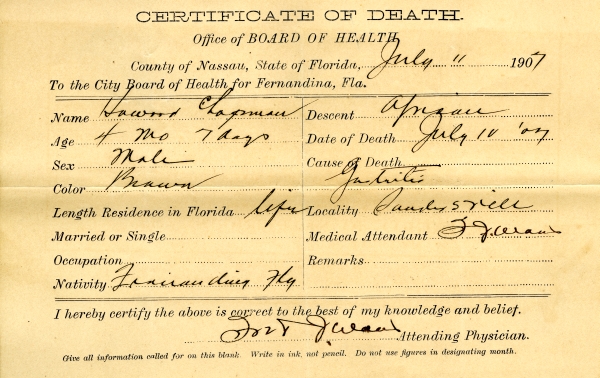 CERTIFICATE OF DEATH.
Office of BOARD OF HEALTH
County of Nassau, State of Florida, July 11 1907
To the City Board of Health for Fernandina, Fla.
Name Howard Chapman Descent African
Age 4 Mo 7 days Date of Death July 10 '07
Sex Male Cause of Death
Color Brown Gastritis
Length Residence in Florida life Locality
Married or Single Medical Attendant
Occupation Remarks
Nativity Fernandina Fla
I hereby certify the above is correct to the best of my knowledge and belief.
Attending Physician.
Give all information called for on this blank. Write in ink, not pencil. Do not use figures in designating month.